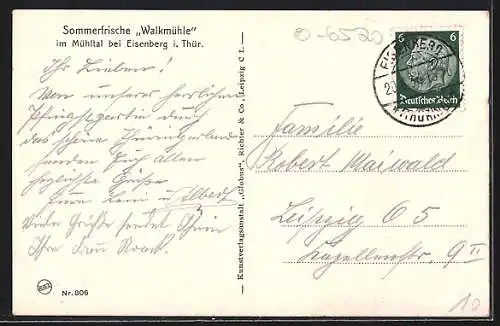 Sommerfrische „Walkmühle"
im Mühltal bei Eisenberg i. Thür.
Ihr Lieben!
Von unserer herrlichen
Pfingstpartie durch
das schöne Thüringerland
senden Euch allen
herzlichste Grüße
Albert
Viele Grüße sendet
Ihre Frau
Nr. 806
Kunstverlagsanstalt „Globus", Richter & Co., Leipzig C 1.
0-6520
6 6
Deutsches Reich
EISENBERG
(THÜR)
Familie
Robert Maiwald
Leipzig O 5
9 II
10